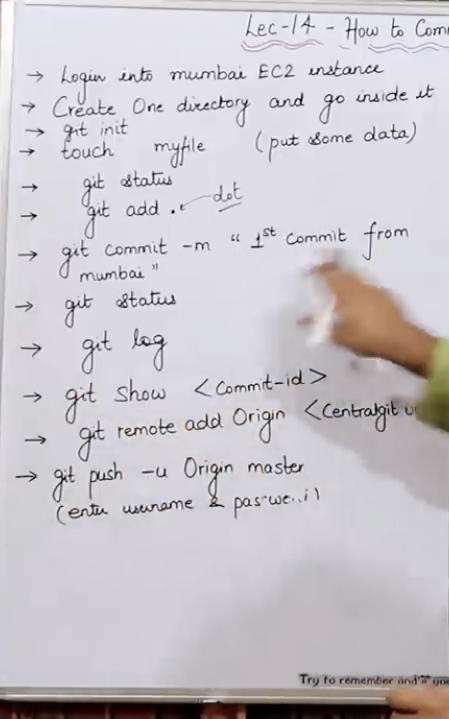 Lec-14 - How to Com
→ Login into mumbai EC2 instance
→ Create One directory and go inside it
→ git init
→ touch myfile (put some data)
→ git status
→ git add . dot
→ git commit -m " 1st commit from
mumbai"
→ git status
→ git log
→ git show <commit-id>
→ git remote add Origin <Centralgit
→ git push -u Origin master
(enter username &
Try to remember and